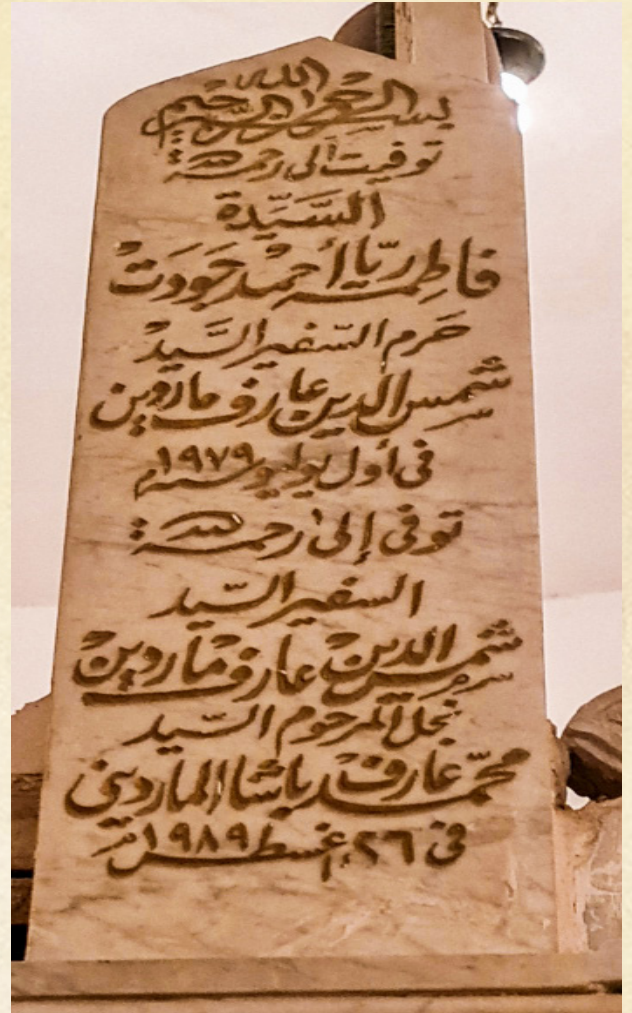 بسم الله الرحمن الرحيم
توفيت الى رحمة الله
السَّيِّدة
فاطمة ريّا أحمد جَودَت
حَرم السّفير السَّيد
شمس الدين عارف ماردين
فى أول يوليو سنة ١٩٧٩م
توفى إلى رحمة الله
السفير السّيد
شمس الدين عارف ماردين
نجل المرحوم السّيد
محمّد عارف باشا الماردينى
فى ٢٦ اغسطس ١٩٨٩م